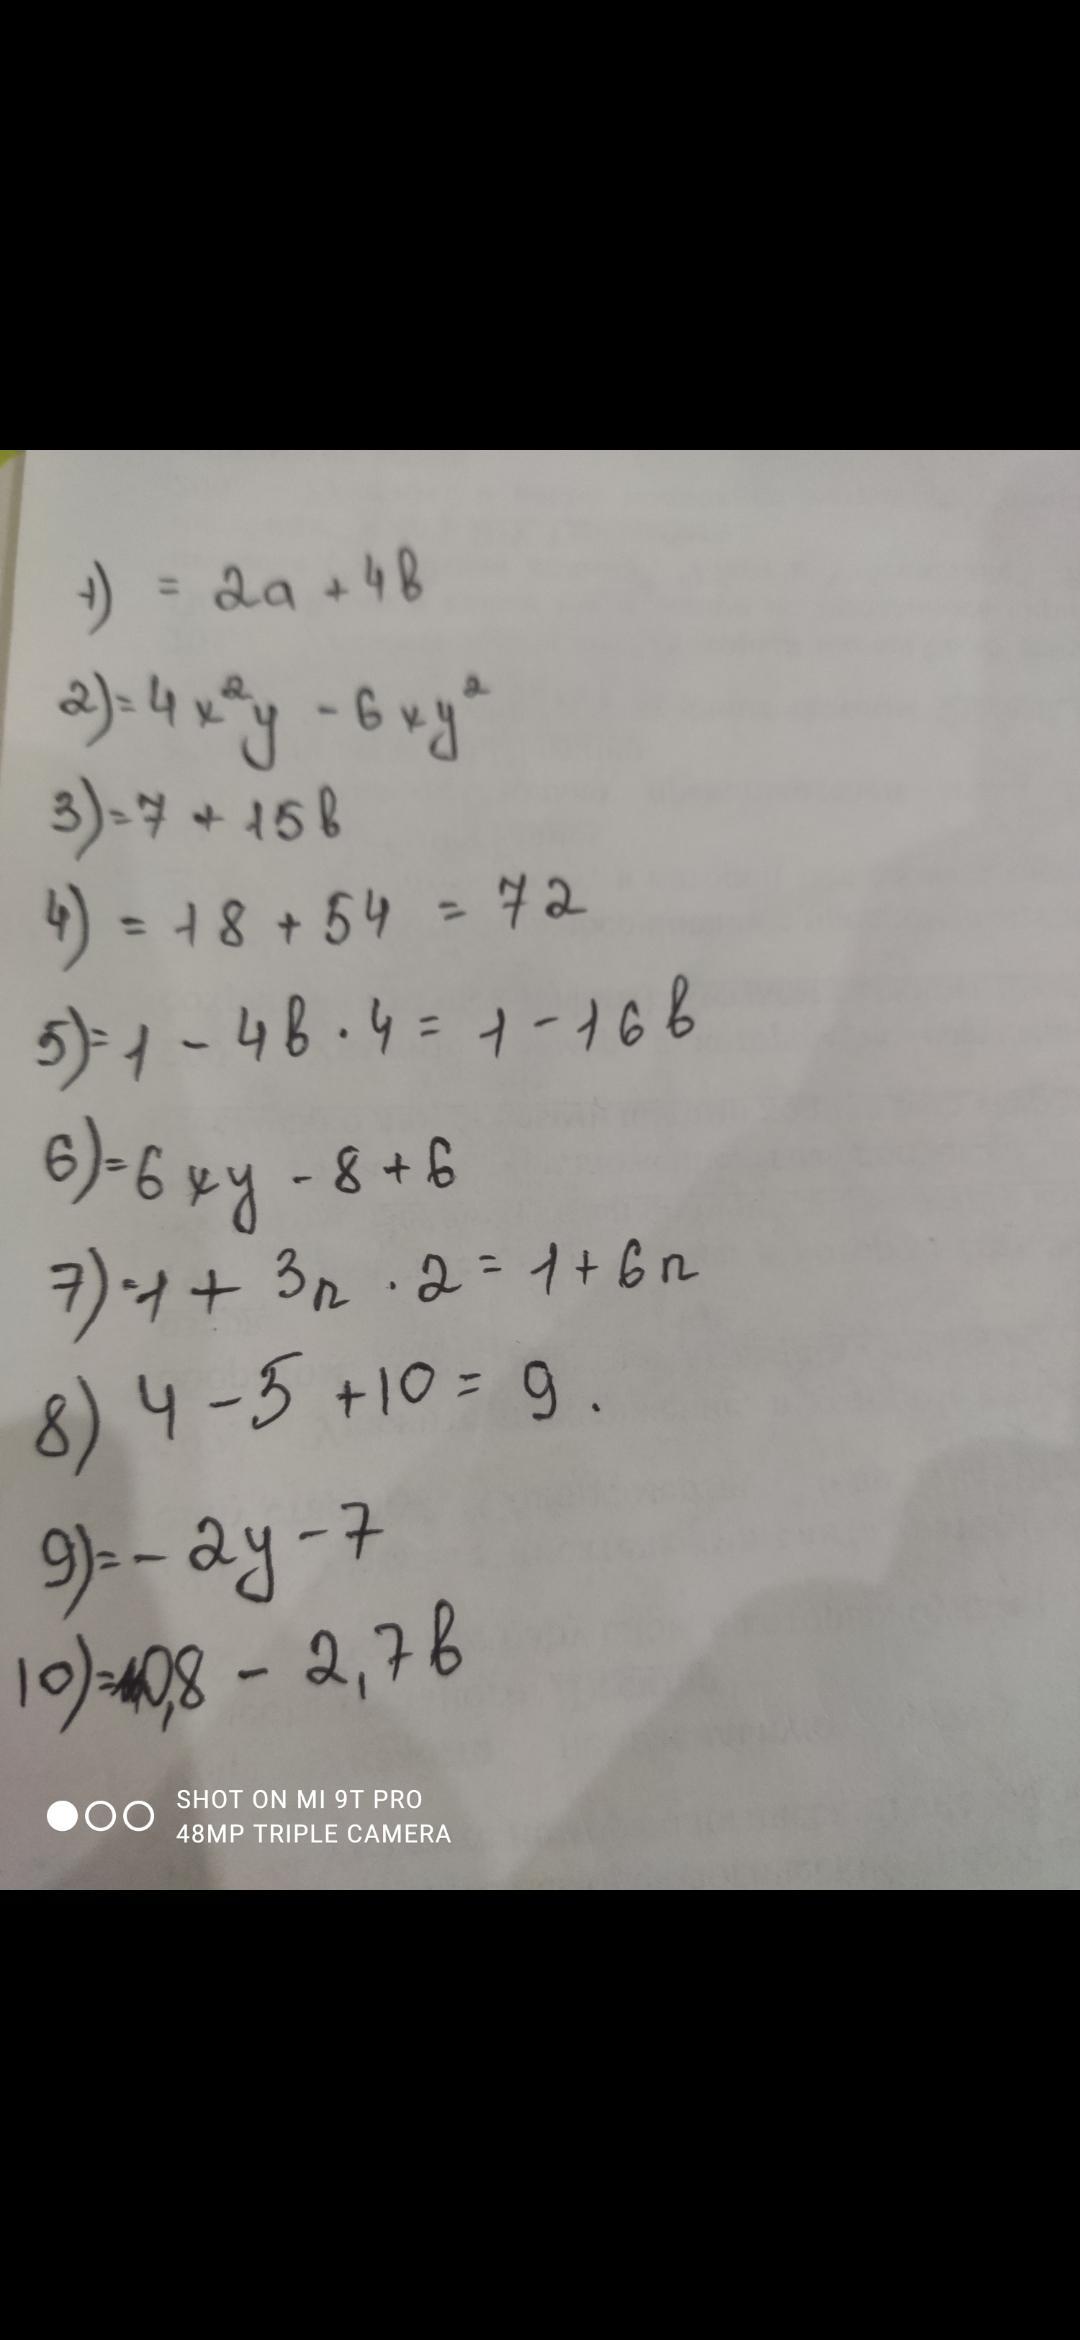 1) = 2a + 4b
2) = 4x²y - 6xy²
3) = 7 + 15b
4) = 18 + 54 = 72
5) = 1 - 4b · 4 = 1 - 16b
6) = 6xy - 8 + 6
7) = 1 + 3n · 2 = 1 + 6n
8) 4 - 5 + 10 = 9.
9) = - 2y - 7
10) = 0,8 - 2,7b
SHOT ON MI 9T PRO
48MP TRIPLE CAMERA